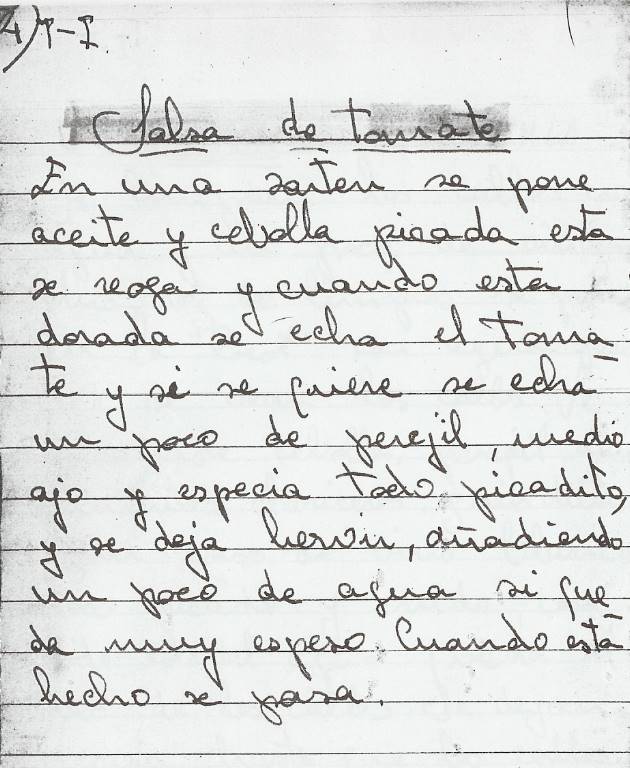 4) T-I
Salsa de tomate
En una sarten se pone
aceite y cebolla picada esta
se reoga y cuando esta
dorada se echa el toma
te y si se quiere se echa
un poco de perejil, medio
ajo y especia todo picadito,
y se deja hervir, añadiendo
un poco de agua si que
da muy espeso. Cuando está
hecho se pasa.